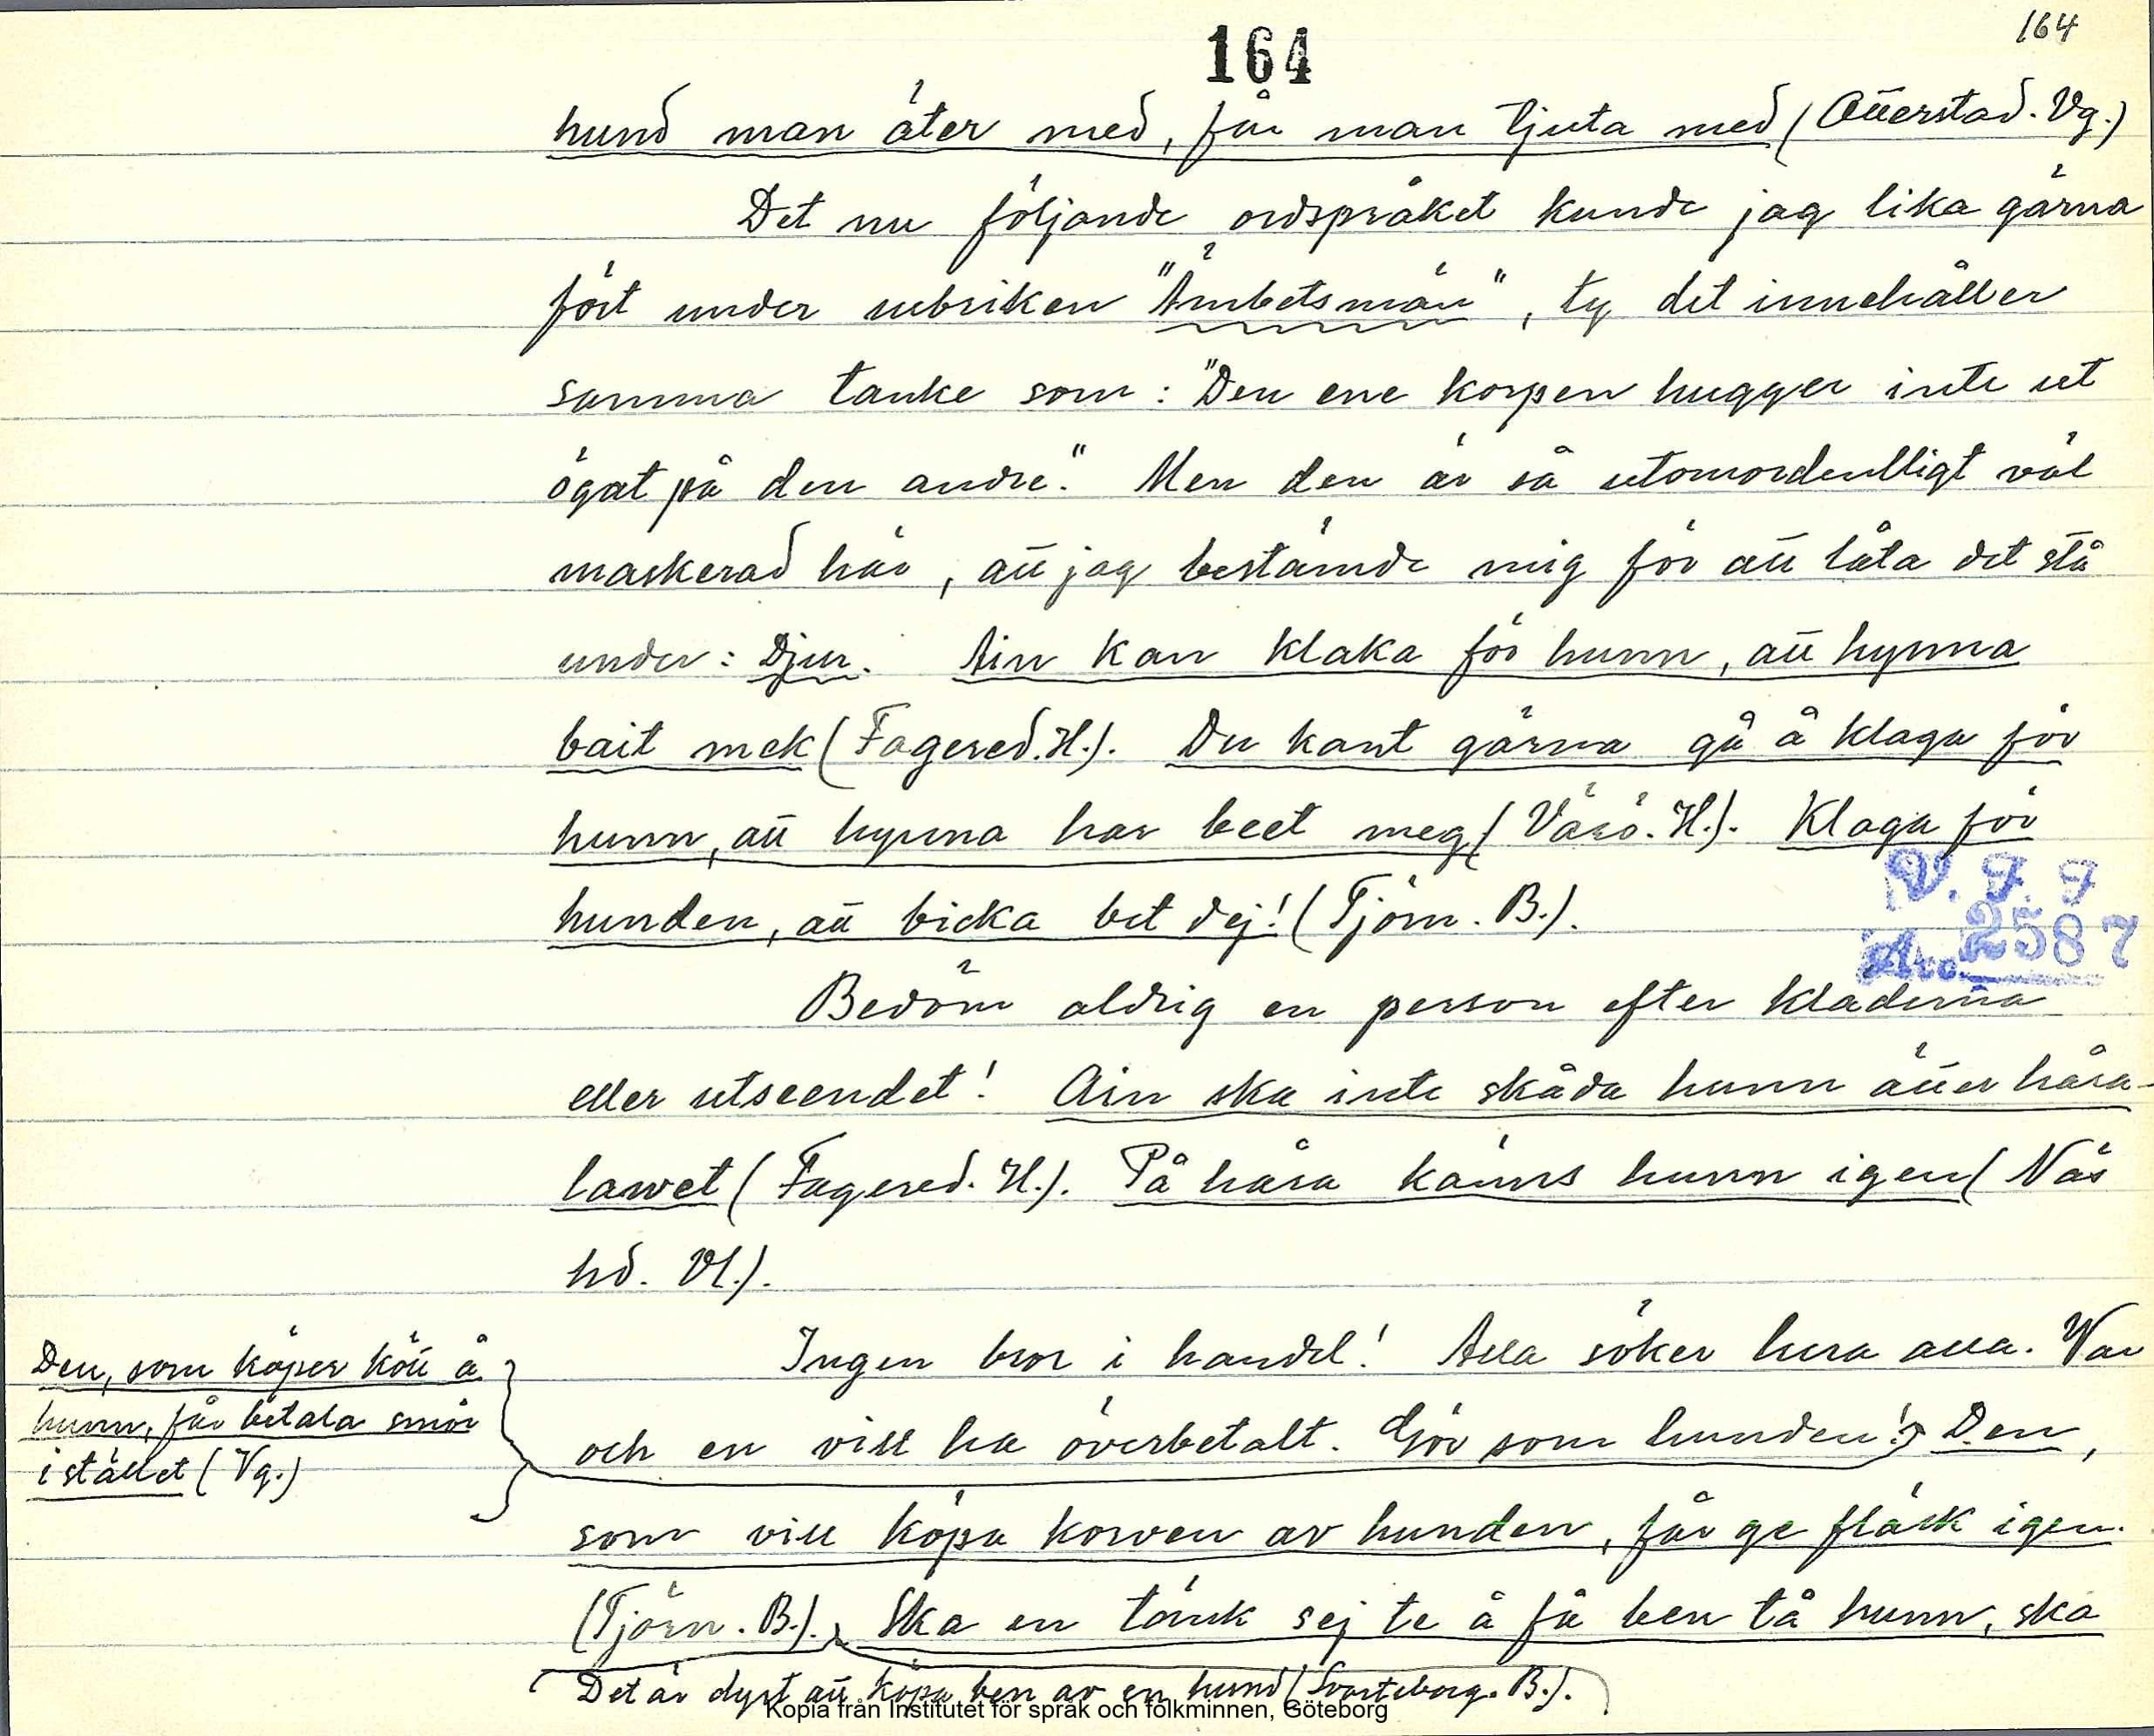 164
164
hund man äter med, får man tjuta med (Otterstad. Vg.)
Det nu följande ordspråket kunde jag lika gärna
fört under rubriken "Ämbetsmän", ty det innehåller
samma tanke som: "Den ene korpen hugger inte ut
ögat på den andre". Men den är så utomordentligt väl
maskerad här, att jag bestämde mig för att låta det stå
under: Djur. Ain kan klaka för hunn, att hynna
bait mek (Fagered. H.). Du kant gärna gå å klaga för
hunn, att hynna har beet meg (Värö. H.). Klaga för
hunden, att bicka bet dej! (Tjörn. B.).
V. F. F
Acc. 2587
Bedöm aldrig en person efter kläderna
eller utseendet! Ain ska inte skåda hunn ätter håra-
lawet (Fagered. H.). På håra känns hunn igen (Näs
hd. Vl.).
Ingen bror i handel! Alla söker lura alla. Var
och en vill ha överbetalt. Gör som hunden! Den,
Den, som köper kött å
hunn, får betala smör
i stället (Vg.)
som vill köpa korven av hunden, får ge fläsk igen.
(Tjörn. B.). Ska en tänk sej te å få ben tå hunn, ska
Det är dyrt att köpa ben av en hund (Svarteborg. B.).
Kopia från Institutet för språk och folkminnen, Göteborg